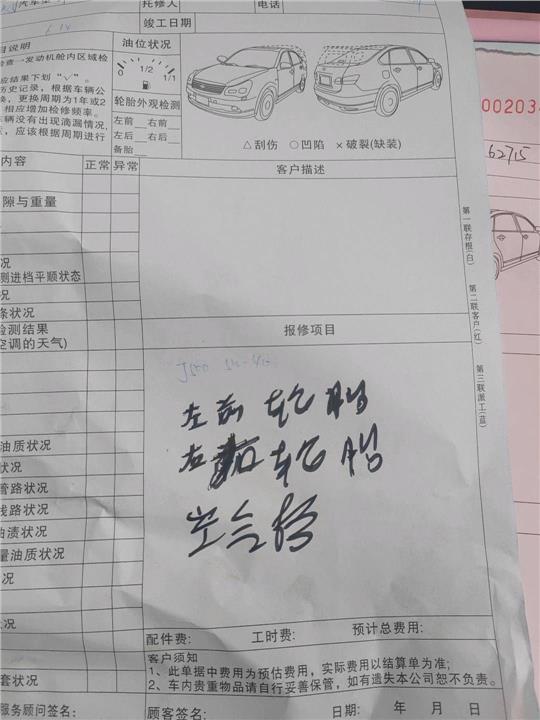 托修人
电话
竣工日期
目说明
油位状况
检查—发动机舱内区域检
1/2
1/1
应结果下划"√"。
历史记录，根据车辆公
换，更换周期为1年或2
相应增加检修频率。
车辆没有出现滴漏情况，
应该根据周期进行
轮胎外观检测
左前 右前
左后 右后
备胎
△刮伤 ○凹陷 ×破裂(缺装)
00203
62715
内容 正常 异常
客户描述
隙与重量
况
测进档平顺状态
况
条状况
检测结果
空调的天气)
第一联存根(白)
第二联客户(红)
第三联派工(蓝)
报修项目
左前轮胎
右前轮胎
空气格
油质状况
状况
管路状况
线路状况
油渍状况
量油质状况
况
状况
套状况
配件费: 工时费: 预计总费用:
客户须知
1、此单据中费用为预估费用，实际费用以结算单为准;
2、车内贵重物品请自行妥善保管，如有遗失本公司恕不负责。
服务顾问签名: 顾客签名: 日期: 年 月 日